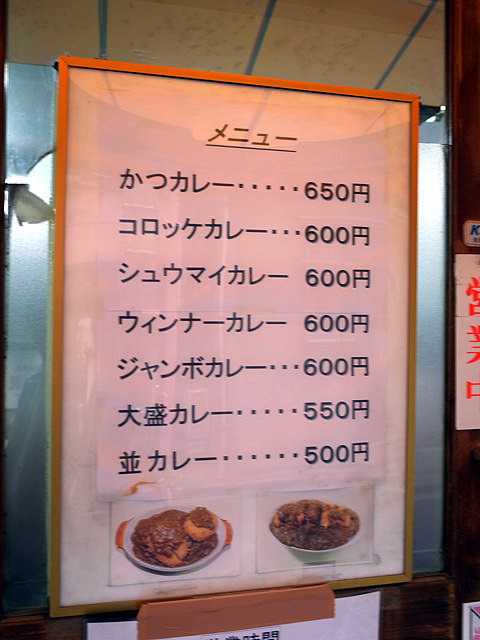 メニュー
かつカレー・・・・・650円
コロッケカレー・・・600円
シュウマイカレー 600円
ウィンナーカレー 600円
ジャンボカレー・・・600円
大盛カレー・・・・・550円
並カレー・・・・・・500円
営業中
営業時間
K